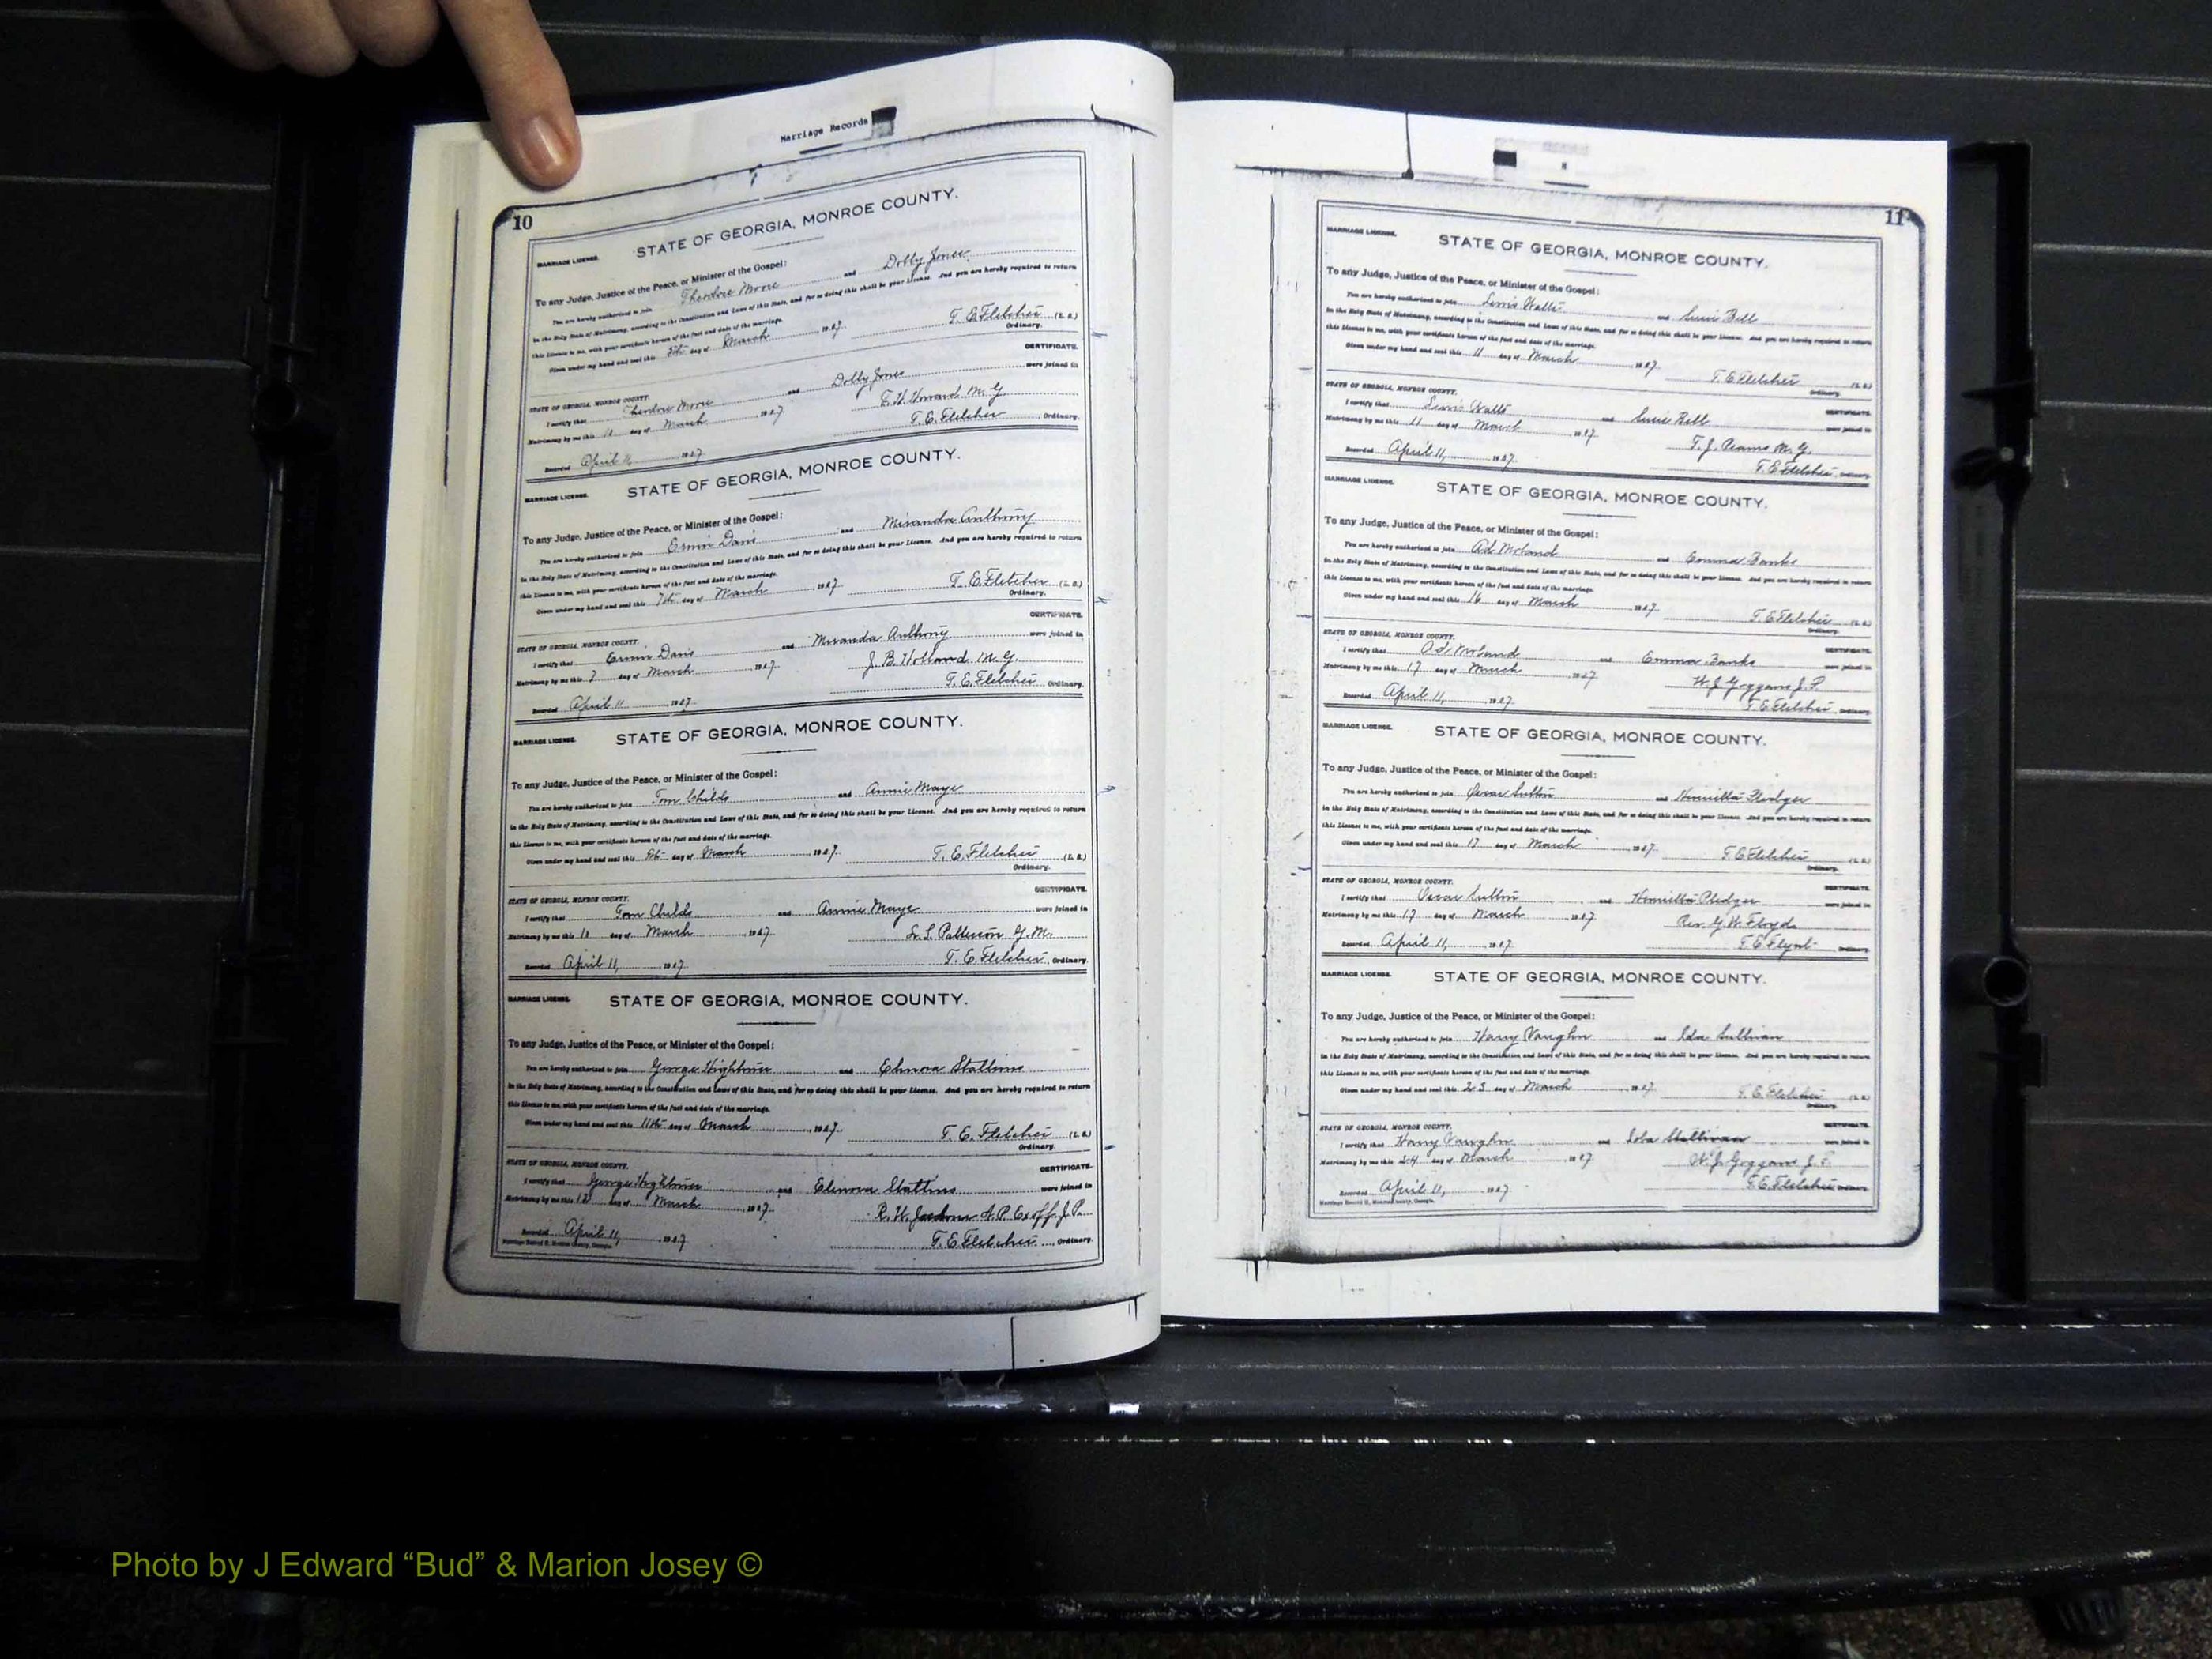 Marriage Records
10
MARRIAGE LICENSE.
STATE OF GEORGIA, MONROE COUNTY.
To any Judge, Justice of the Peace, or Minister of the Gospel:
You are hereby authorized to join Theodore Moore and Dolly Jones
in the Holy State of Matrimony, according to the Constitution and Laws of this State, and for so doing this shall be your License. And you are hereby required to return
this License to me, with your certificate hereon of the fact and date of the marriage.
Given under my hand and seal this 5th day of March, 1927. T. E. Fletcher (L. S.)
Ordinary.
CERTIFICATE.
STATE OF GEORGIA, MONROE COUNTY.
I certify that Theodore Moore and Dolly Jones were joined in
Matrimony by me this day of March, 1927 M. G.
Recorded April 11, 1927 T. E. Fletcher, Ordinary.
MARRIAGE LICENSE.
STATE OF GEORGIA, MONROE COUNTY.
To any Judge, Justice of the Peace, or Minister of the Gospel:
You are hereby authorized to join Ermin Davis and Miranda Anthony
in the Holy State of Matrimony, according to the Constitution and Laws of this State, and for so doing this shall be your License. And you are hereby required to return
this License to me, with your certificate hereon of the fact and date of the marriage.
Given under my hand and seal this 7th day of March, 1927. T. E. Fletcher (L. S.)
Ordinary.
CERTIFICATE.
STATE OF GEORGIA, MONROE COUNTY.
I certify that Ermin Davis and Miranda Anthony were joined in
Matrimony by me this 7 day of March, 1927 J. B. Holland M. G.
Recorded April 11, 1927. T. E. Fletcher Ordinary.
MARRIAGE LICENSE.
STATE OF GEORGIA, MONROE COUNTY.
To any Judge, Justice of the Peace, or Minister of the Gospel:
You are hereby authorized to join Tom Childs and Annie Maye
in the Holy State of Matrimony, according to the Constitution and Laws of this State, and for so doing this shall be your License. And you are hereby required to return
this License to me, with your certificate hereon of the fact and date of the marriage.
Given under my hand and seal this 9th day of March, 1927. T. E. Fletcher (L. S.)
Ordinary.
CERTIFICATE.
STATE OF GEORGIA, MONROE COUNTY.
I certify that Tom Childs and Annie Maye were joined in
Matrimony by me this day of March, 1927. S. Patterson G. M.
Recorded April 11, 1927. T. E. Fletcher, Ordinary.
MARRIAGE LICENSE.
STATE OF GEORGIA, MONROE COUNTY.
To any Judge, Justice of the Peace, or Minister of the Gospel:
You are hereby authorized to join George Hightower and Elenora Stallins
in the Holy State of Matrimony, according to the Constitution and Laws of this State, and for so doing this shall be your License. And you are hereby required to return
this License to me, with your certificate hereon of the fact and date of the marriage.
Given under my hand and seal this 11th day of March, 1927. T. E. Fletcher (L. S.)
Ordinary.
CERTIFICATE.
STATE OF GEORGIA, MONROE COUNTY.
I certify that George Hightower and Elenora Stallins were joined in
Matrimony by me this 12 day of March, 1927. R. W. N. P. Ex off. J. P.
Recorded April 11, 1927 T. E. Fletcher, Ordinary.
Marriage Record H, Monroe County, Georgia.
11
MARRIAGE LICENSE.
STATE OF GEORGIA, MONROE COUNTY.
To any Judge, Justice of the Peace, or Minister of the Gospel:
You are hereby authorized to join Lewis Watts and Susie Bell
in the Holy State of Matrimony, according to the Constitution and Laws of this State, and for so doing this shall be your License. And you are hereby required to return
this License to me, with your certificate hereon of the fact and date of the marriage.
Given under my hand and seal this 11 day of March, 1927. T. E. Fletcher (L. S.)
Ordinary.
STATE OF GEORGIA, MONROE COUNTY. CERTIFICATE.
I certify that Lewis Watts and Susie Bell were joined in
Matrimony by me this 11 day of March, 1927. T. J. M. G.
Recorded April 11, 1927. T. E. Fletcher, Ordinary.
MARRIAGE LICENSE.
STATE OF GEORGIA, MONROE COUNTY.
To any Judge, Justice of the Peace, or Minister of the Gospel:
You are hereby authorized to join Ad Moland and Emma Banks
in the Holy State of Matrimony, according to the Constitution and Laws of this State, and for so doing this shall be your License. And you are hereby required to return
this License to me, with your certificate hereon of the fact and date of the marriage.
Given under my hand and seal this 16 day of March, 1927. T. E. Fletcher (L. S.)
Ordinary.
STATE OF GEORGIA, MONROE COUNTY. CERTIFICATE.
I certify that Ad Moland and Emma Banks were joined in
Matrimony by me this 17 day of March, 1927 W. J. Goggans J. P.
Recorded April 11, 1927. T. E. Fletcher, Ordinary.
MARRIAGE LICENSE.
STATE OF GEORGIA, MONROE COUNTY.
To any Judge, Justice of the Peace, or Minister of the Gospel:
You are hereby authorized to join Oscar Sutton and Henrietta Pledger
in the Holy State of Matrimony, according to the Constitution and Laws of this State, and for so doing this shall be your License. And you are hereby required to return
this License to me, with your certificate hereon of the fact and date of the marriage.
Given under my hand and seal this 17 day of March, 1927. T. E. Fletcher (L. S.)
Ordinary.
STATE OF GEORGIA, MONROE COUNTY. CERTIFICATE.
I certify that Oscar Sutton and Henrietta Pledger were joined in
Matrimony by me this 17 day of March, 1927 Rev. G. W. Floyd
Recorded April 11, 1927. T. E. Flynt Ordinary.
MARRIAGE LICENSE.
STATE OF GEORGIA, MONROE COUNTY.
To any Judge, Justice of the Peace, or Minister of the Gospel:
You are hereby authorized to join Harry Vaughn and Lola Sullivan
in the Holy State of Matrimony, according to the Constitution and Laws of this State, and for so doing this shall be your License. And you are hereby required to return
this License to me, with your certificate hereon of the fact and date of the marriage.
Given under my hand and seal this 23 day of March, 1927. T. E. Fletcher (L. S.)
Ordinary.
STATE OF GEORGIA, MONROE COUNTY. CERTIFICATE.
I certify that Harry Vaughn and Lola were joined in
Matrimony by me this 24 day of March, 1927 W. J. Goggans J. P.
Recorded April 11, 1927 T. E. Fletcher Ordinary.
Marriage Record H, Monroe County, Georgia.
Photo by J Edward “Bud” & Marion Josey ©